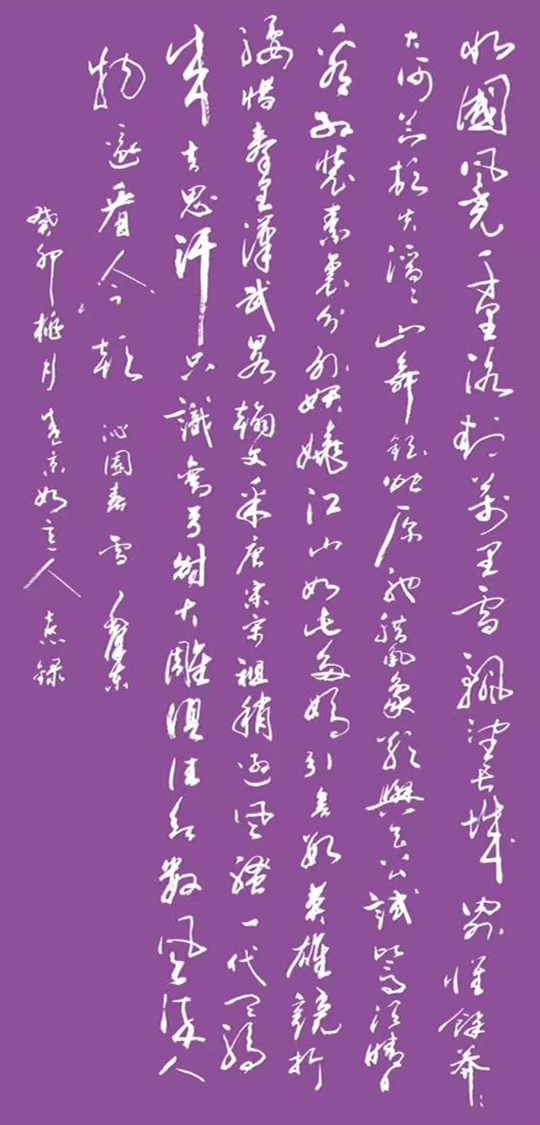 北國風光千里冰封萬里雪飄望長城內外惟餘莽〻
大河上下頓失滔〻山舞銀蛇原馳蠟象欲與天公試比高須晴日
看紅裝素裹分外妖嬈江山如此多嬌引無數英雄競折
腰惜秦皇漢武畧輸文采唐宗宋祖稍遜風騷一代天驕
成吉思汗只識彎弓射大雕俱往矣數風流人
物還看今朝 沁園春雪
癸卯桃月 京如意人 錄